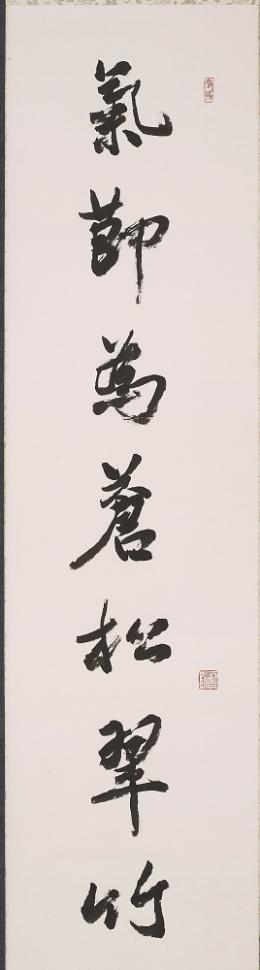 氣節為蒼松翠竹